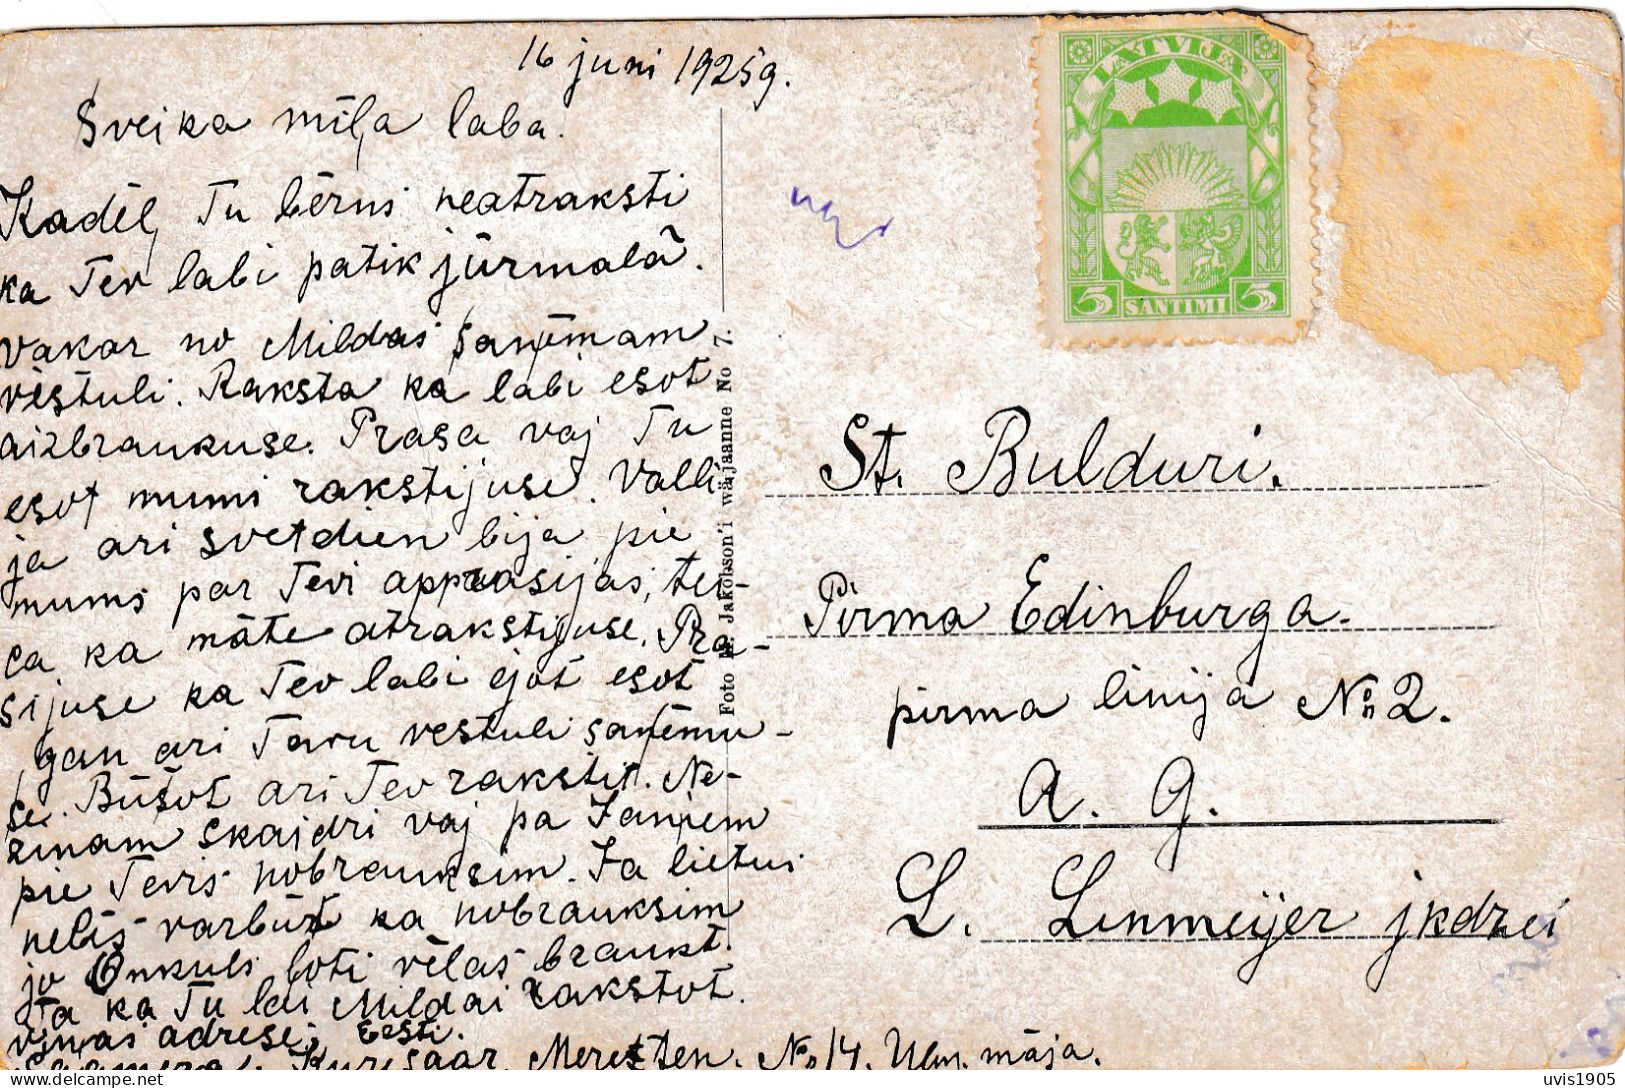 16 juni 1925g.
Sveika mīļa laba.
Kadēļ Tu bērns neatraksti
ka Tev labi patik jūrmalā.
Vakar no Mildas saņēmam
vēstuli. Raksta ka labi esot
aizbraukuse. Prasa vaj Tu
esot mumi rakstijuse. Valli
ja ari svetdien bija pie
mums par Tevi apprasijas, tei-
ca ka māte atrakstijuse. Pra-
sijuse ka Tev labi ejot esot
gan ari Tavu vestuli saņēmu-
se. Būšot ari Tev rakstit. Ne-
zinam skajdri vaj pa Janiem
pie Tevis nobrauksim. Ja lietus
nebūs varbūt ka nobrauksim
jo Onkuls ļoti vēlas braukt.
Ta ka Tu lai Mildai rakstot.
viņas adrese; Eesti.
Kuresaar. No 14. māja.
LATVIJA
5 SANTIMI 5
Foto Jakobson'i wäljaanne No
St. Bulduri.
Pirma Edinburga.
pirma linija No 2.
A. G.
L. Lenmeijer jkdzei
uvis1905